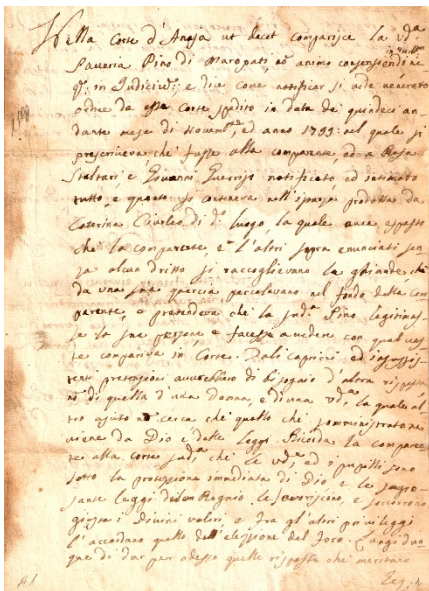 Nella Corte d'Anoja ut decet comparisce la v.da
Saveria Pino di Maropati, no' animo consentendi ne
q.i in Judiciu; e dice come notificar si vide venerato
ordine da essa Corte spedito in data dei quindeci an
dante mese di Novem.e, ed anno 1793: nel quale si
prescriveva, che fusse alla comparente, ed a Rosa
Staltari, e Giovanni Guerrisi notificato, ed intimato
tutto, e quanto si conteneva nell'istanza prodotta da
Caterina Ciurleo di d.o luogo, la quale avea esposto
che la comparente, e l'altri sopra enunciati sen
za alcun dritto si raccoglievano la ghianda, che
da una sua quercia percolavano nel fondo della com
parente, e pretendeva che la sud.a Pino legitimas
se la sua persona, e facesse avedere con qual ves
te compariva in Corte. Tali capricci, ed insussis
tenti pretenzioni avvrebbero di bisogno d'altra risposta
di quella d'una donna, e di una v.da, la quale al
tro ajuto no' cerca che quello che somministrato ne
viene da Dio, e dalle Leggi. Ricorda la comparen
te alla Corte sud.a, che le v.de, ed i pupilli sono
sotto la protezione immediata di Dio, e le sagro
sante leggi del un Regnio le favoriscino, e soccorrono
giusta i Divini voleri, e fra gli altri privileggi
l'accordano quello dell'elezzione del Foro. Lungi dun
que di dar per adesso quelle risposte che meritano